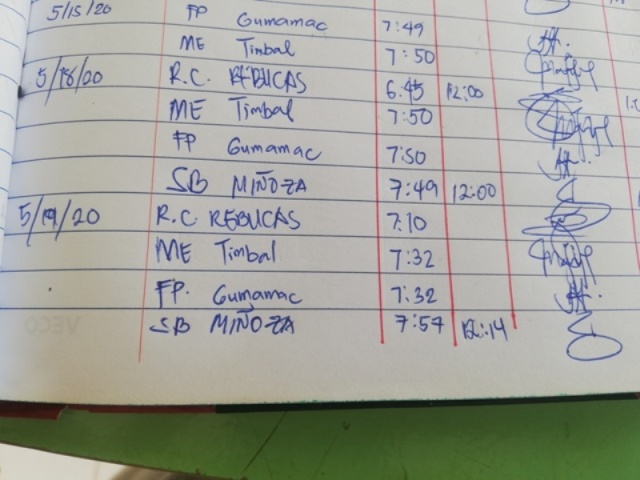 5/15/20 FP Gumamac 7:49
ME Timbal 7:50
5/18/20 R.C. REBUCAS 6:45 12:00
ME Timbal 7:50
FP Gumamac 7:50
SB MIÑOZA 7:49 12:00
5/19/20 R.C REBUCAS 7:10
ME Timbal 7:32
FP. Gumamac 7:32
SB MIÑOZA 7:57 12:14
VECO